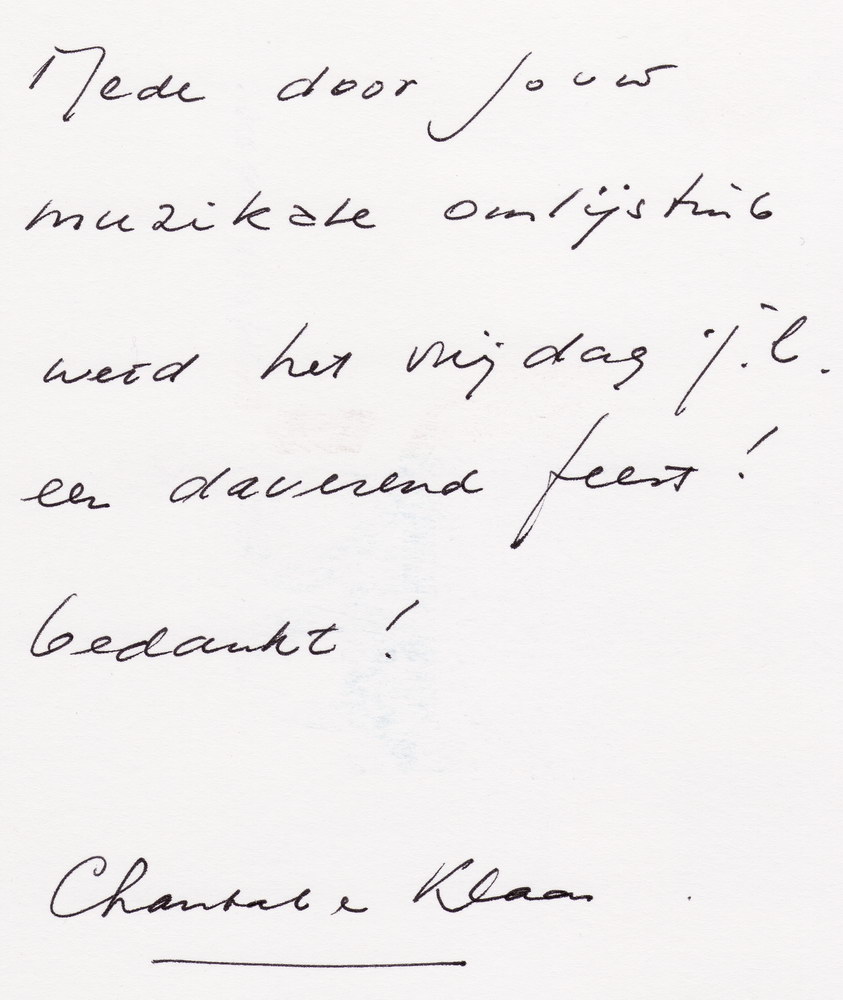 Mede door jouw
muzikale omlijsting
werd het vrijdag j.l.
een daverend feest!
bedankt!
Chantal e Klaas